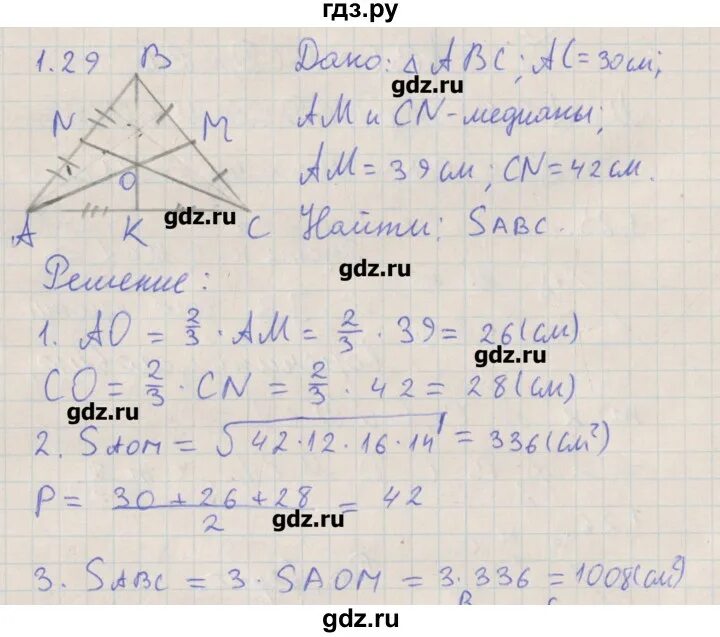 гдз.ру
1.29 B Дано: △ABC; AC=30см;
gdz.ru
N M AM и CN-медианы;
O AM=39см; CN=42см.
gdz.ru
A K C Найти: SABC.
gdz.ru
Решение:
1. AO = 2/3 · AM = 2/3 · 39 = 26(см)
gdz.ru
CO = 2/3 · CN = 2/3 · 42 = 28(см)
gdz.ru
2. SAOM = √42·12·16·14 = 336(см²)
P = (30+26+28)/2 = 42
gdz.ru
3. SABC = 3·SAOM = 3·336 = 1008(см²)
B
gdz.ru